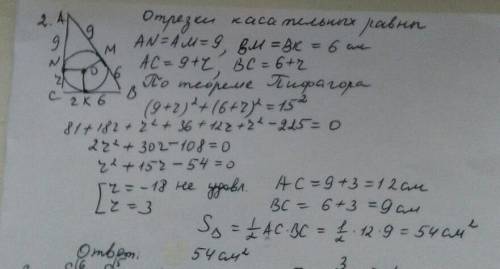 2. A Отрезки касательных равны
9 9 AN=AM=9, BM=BK=6 см
N M AC=9+r, BC=6+r
r O 6 По теореме Пифагора
C r K 6 B
(9+r)²+(6+r)²=15²
81+18r+r²+36+12r+r²-225=0
2r²+30r-108=0
r²+15r-54=0
[r=-18 не удовл. AC=9+3=12см
r=3 BC=6+3=9см
S△=½AC·BC=½·12·9=54см²
Ответ. 54см²